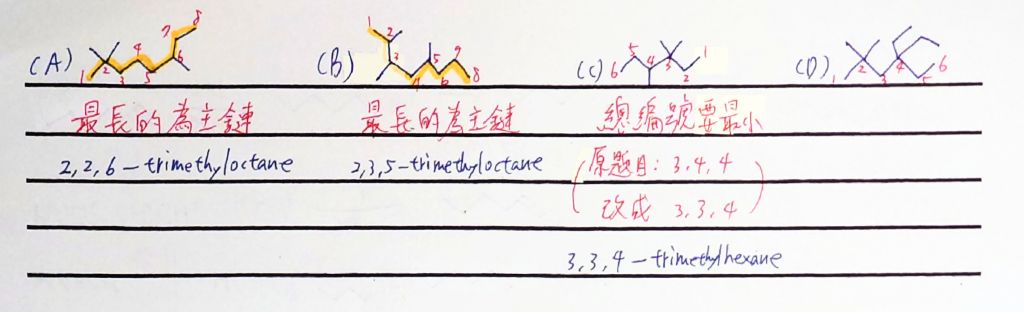 (A) 1 2 3 4 5 6 7 8 (B) 1 2 3 4 5 6 7 8 (C) 6 5 4 3 2 1 (D) 1 2 3 4 5 6
最長的為主鏈 最長的為主鏈 總編號要最小
2,2,6-trimethyloctane 2,3,5-trimethyloctane (原題目: 3,4,4
改成 3,3,4)
3,3,4-trimethylhexane